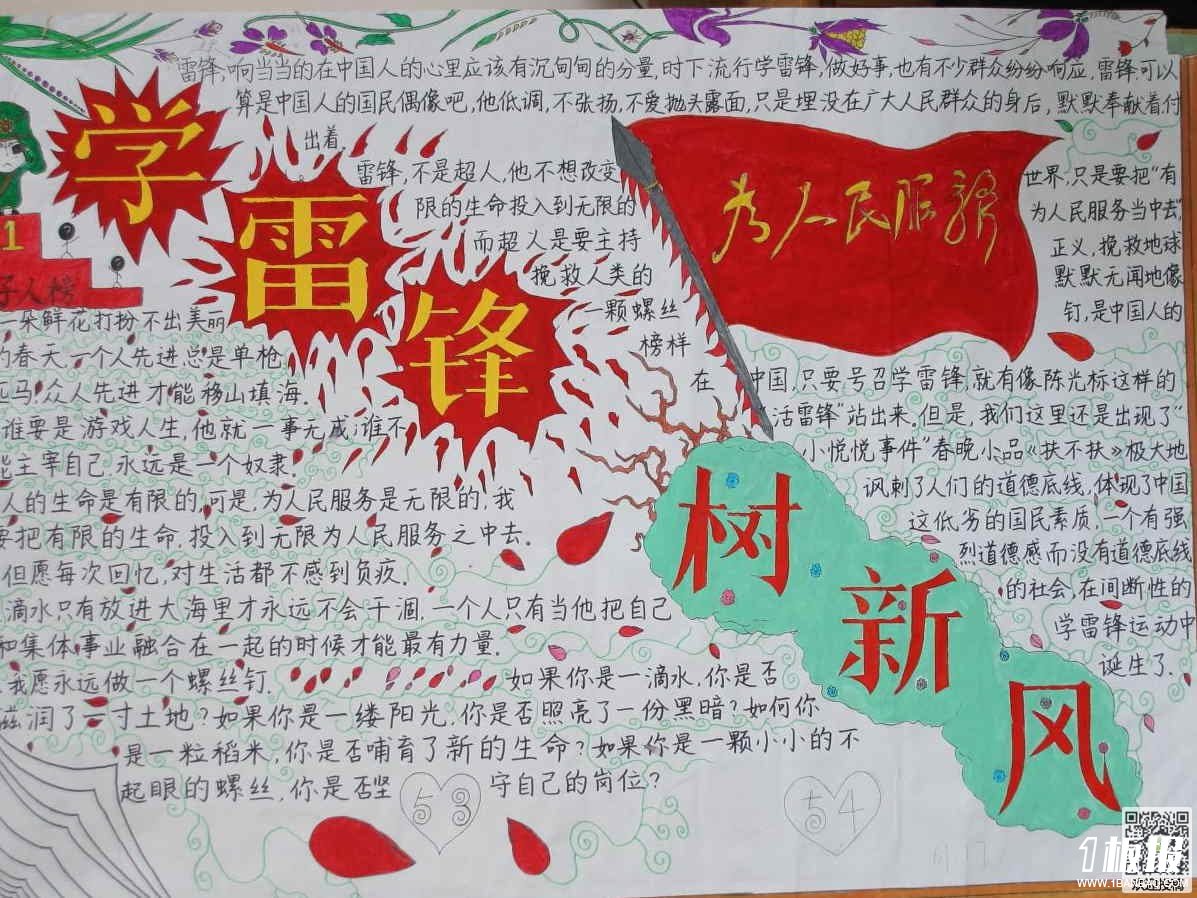 雷锋,响当当的在中国人的心里应该有沉甸甸的分量,时下流行学雷锋,做好事,也有不少群众纷纷响应,雷锋可以
算是中国人的国民偶像吧,他低调,不张扬,不爱抛头露面,只是埋没在广大人民群众的身后,默默奉献着付
出着.
学
雷
锋
雷锋,不是超人,他不想改变世界,只是要把“有
限的生命投入到无限的为人民服务当中去”,
而超人是要主持正义,挽救地球
挽救人类的默默无闻地像
一颗螺丝钉,是中国人的
榜样
为人民服务
1
好人榜
一朵鲜花打扮不出美丽
的春天,一个人先进总是单枪
匹马,众人先进才能移山填海.
谁要是游戏人生,他就一事无成,谁不
能主宰自己,永远是一个奴隶.
人的生命是有限的,可是,为人民服务是无限的,我
要把有限的生命,投入到无限为人民服务之中去.
但愿每次回忆,对生活都不感到负疚.
滴水只有放进大海里才永远不会干涸,一个人只有当他把自己
和集体事业融合在一起的时候才能最有力量.
我愿永远做一个螺丝钉.
在中国,只要号召学雷锋,就有像陈光标这样的
“活雷锋”站出来.但是,我们这里还是出现了“
小悦悦事件”春晚小品《扶不扶》极大地
讽刺了人们的道德底线,体现了中国
这低劣的国民素质,一个有强
烈道德感而没有道德底线
的社会,在间断性的
学雷锋运动中
诞生了.
树
新
风
如果你是一滴水,你是否
滋润了一寸土地?如果你是一缕阳光,你是否照亮了一份黑暗?如何你
是一粒稻米,你是否哺育了新的生命?如果你是一颗小小的不
起眼的螺丝,你是否坚守自己的岗位?
53
54
1板报
WWW.1BANBAO.COM
欢迎投稿